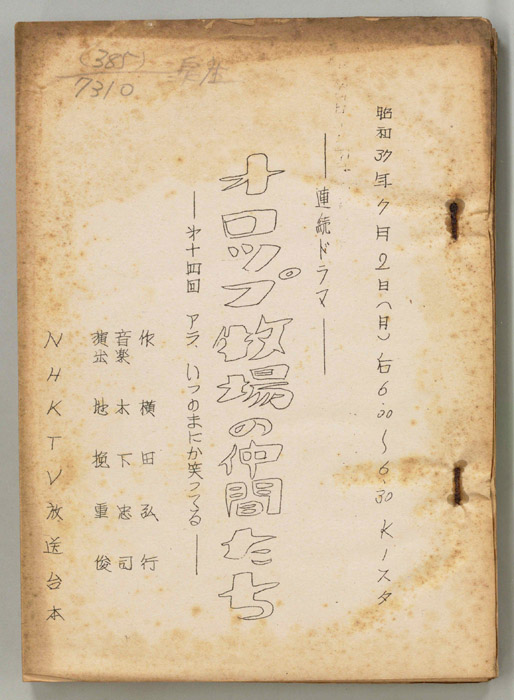 (385)
7310
昭和37年7月2日(月)后6.00〜6.30 Kノスタ
―連続ドラマ―
オロップ牧場の仲間たち
―第十四回 アラ、いつのまにか笑ってる―
作 横田弘行
音楽 木下忠司
演出 地挽重俊
NHKTV放送台本